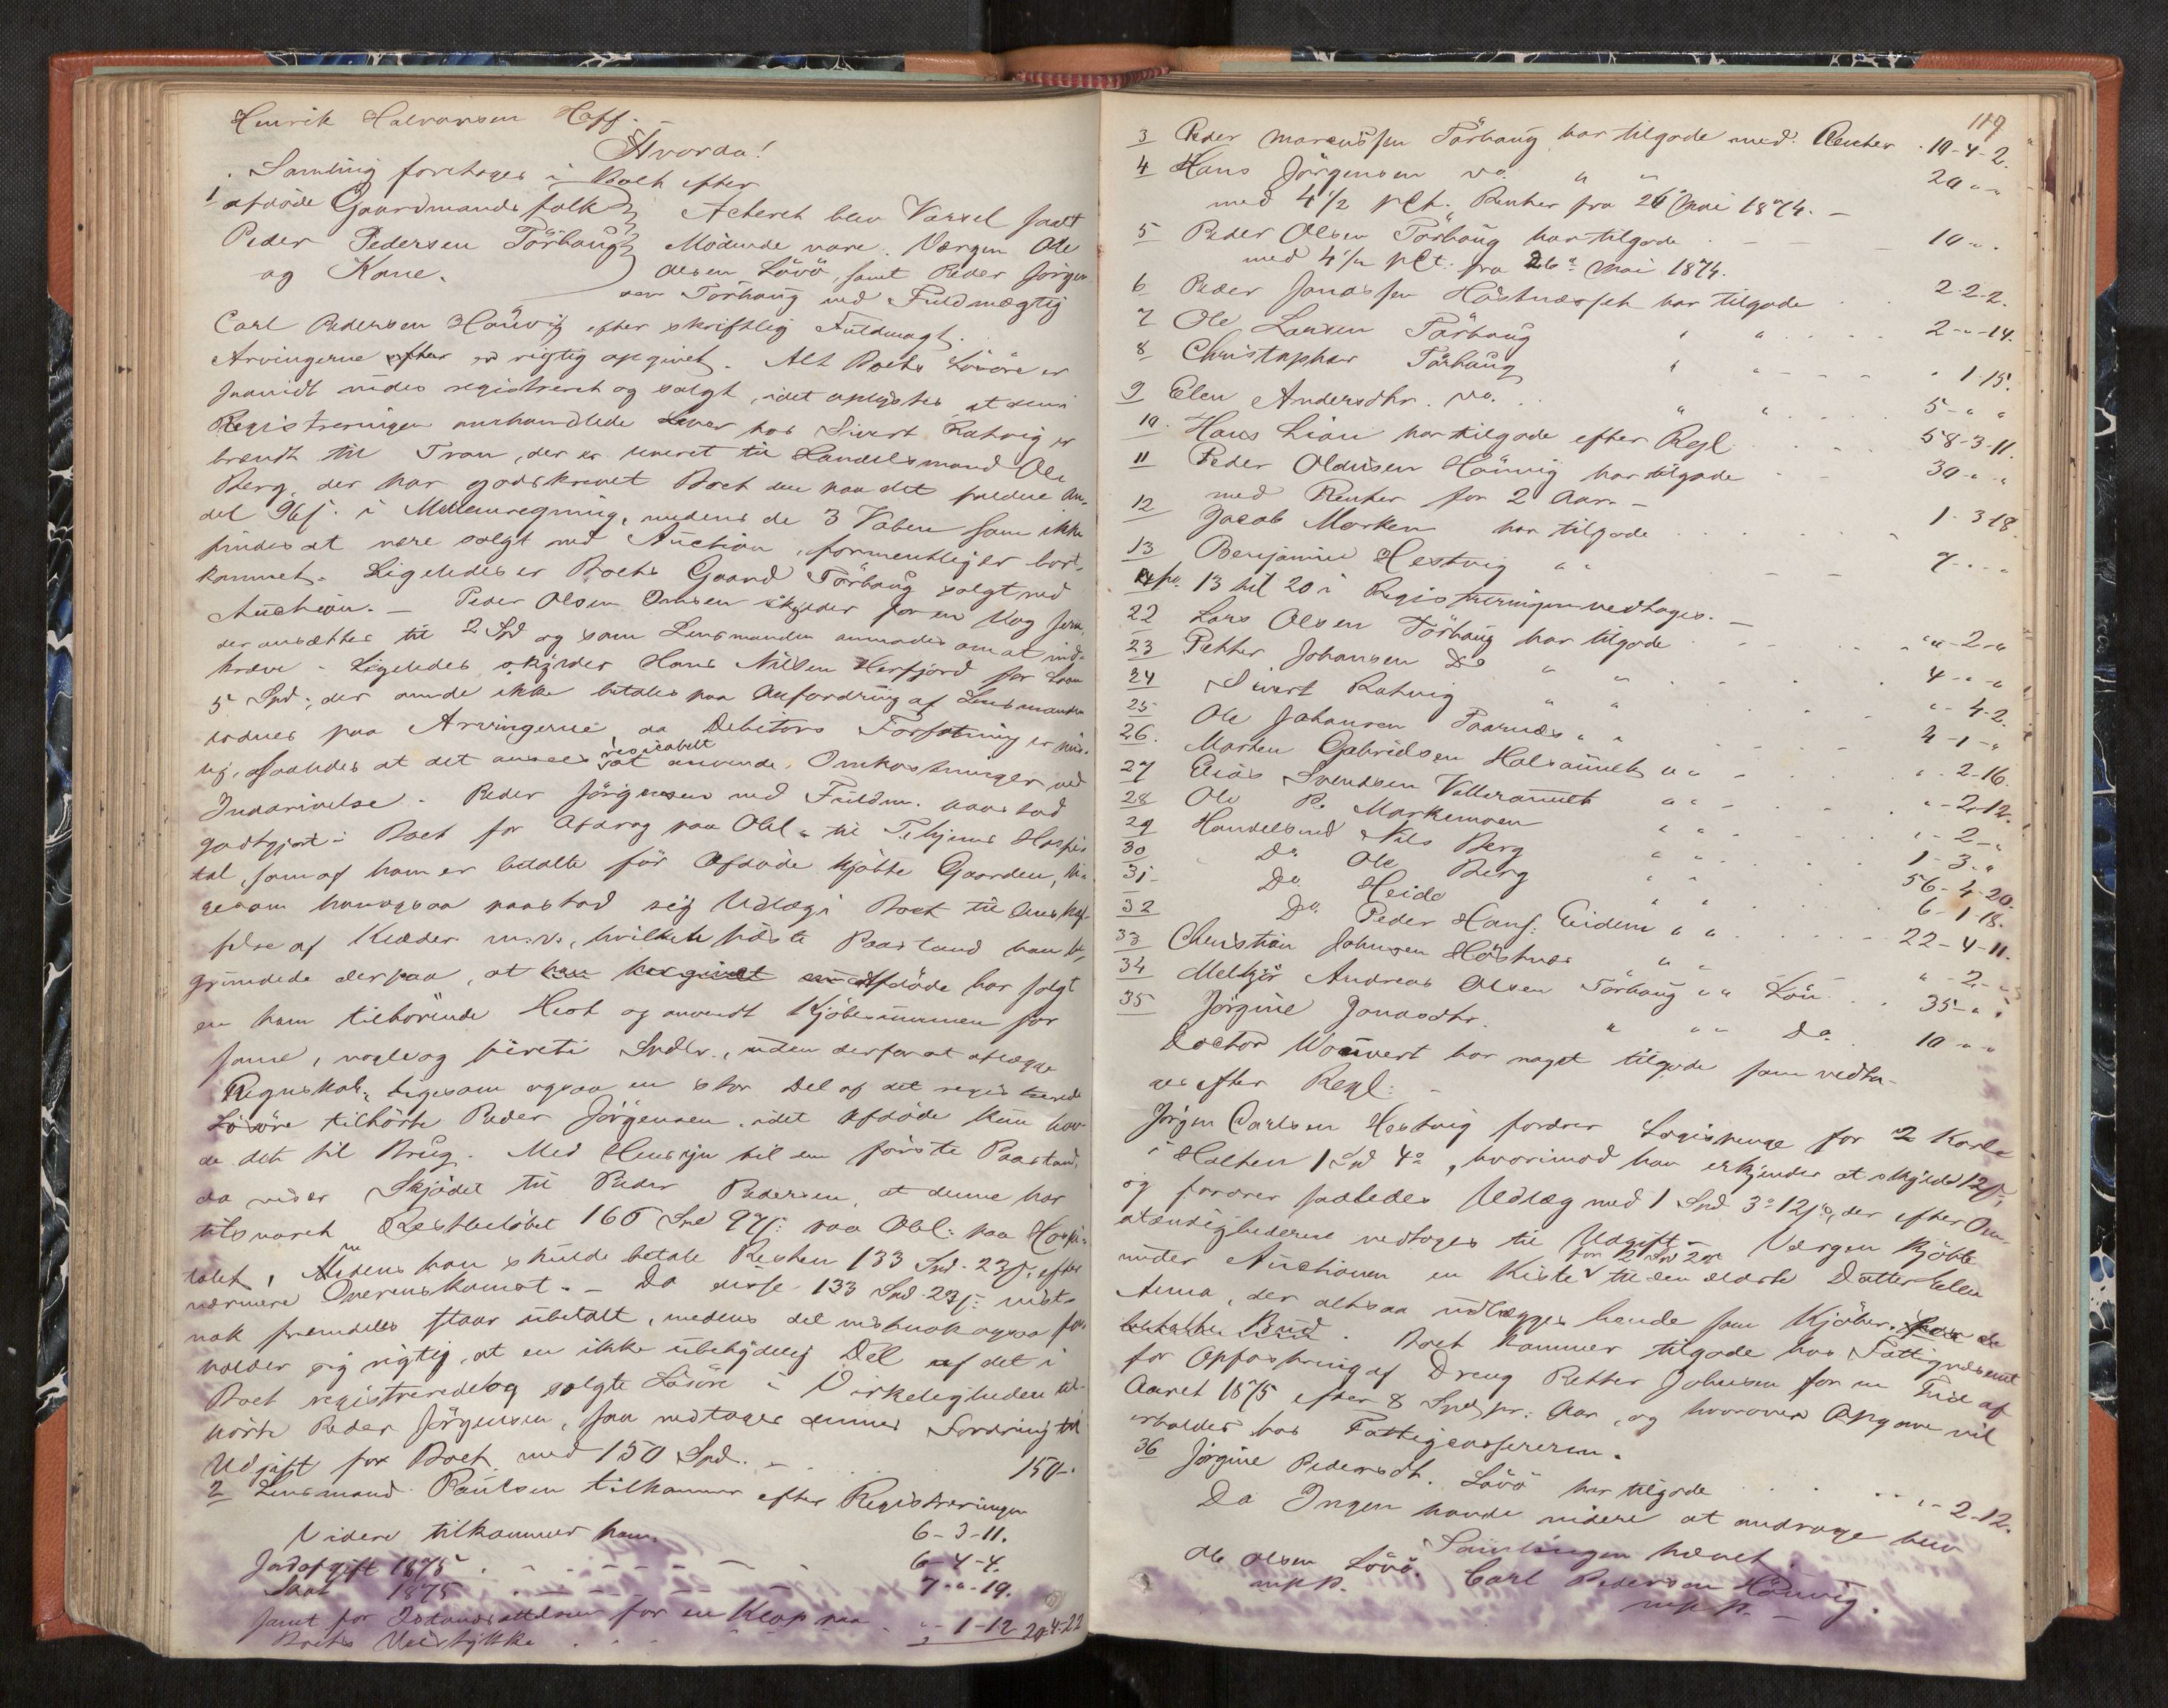 Henrik Halvorsen Hoff. —
Hvorda!
Samling foretages i Boet efter
1 afdöde Gaardmandsfolk
Peder Pedersen Törhaug
og Kone.
Acteret blev Varsel
Mödende vare. Værgen Ole
Olsen Lövö, samt Peder Jörgen
sen Törhaug ved Fuldmægtig
Carl Pedersen Hauvig efter skriftlig Fuldmagt.
Arvingerne er rigtig opgivet. Alt Boets Lösöre er
saavidt vides registreret og solgt, idet oplystes, at den i
Registreringen omhandlede Lever hos Sivert Rotvig er
brændt til Tran, der er leveret til Handelsmand Ole
Berg, der har godskrevet Boet den paa det faldne An-
del 96 s. i Mellemregning, medens de 3 Voben som ikke
findes at være solgt ved Auction, formentlig er bort-
kommet. Ligeledes er Boets Gaard Törhaug solgt ved
Auction. — Peder Olsen skylder for en Vog
der ansættes til 2 Spd og som Lensmanden anmodes om at ind-
kræve. Ligeledes skylder Hans Nilsen Herfjord for Laan
5 Spd; der ikke betales paa Anfordring af Lensmanden
paa Arvingerne, da Debitors Forfatning er
lig, saaledes at det ansees resicabelt at anvende Omkostninger ved
Inddrivelse. Peder Jörgensen ved Fuldm. paastod
godtgjort i Boet for Afdrag paa Obl. til Hospi
tal, som af ham er betalte för Afdöde kjöbte Gaarden, li-
gesom han ogsaa paastod sig Udlæg i Boet til Anskaf-
felse af Klæder m.v., hvilket sidste Paastand han be-
grundede derpaa, at Afdöde har solgt
en ham tilhörende Hest og anvendt Kjöbesummen for
samme, nogle og firti Spdlr., uden derfor at aflægge
Regnskab, ligesom ogsaa en stor Del af det registrerede
Lösöre tilhörte Peder Jörgensen, idet Afdöde kun hav-
de det til Brug. Med Hensyn til den förste Paastand,
da viser Skjödet til Peder Pedersen, at denne har
tilsvaret Restbelöbet 166 Spd 97 s: paa Obl: paa Hospi-
talet, Medens han skulde betale Resten 133 Spd. 23 s. efter
nærmere Overenskomst. — Da disse 133 Spd. 23 s: vist-
nok fremdeles staar ubetalt, medens det vistnok ogsaa for-
holder sig rigtig, at en ikke ubetydelig Del af det i
Boet registrerede og solgte Lösöre i Virkeligheden til-
hörte Peder Jörgensen, saa vedtages dennes Fordring til
Udgift for Boet med 150 Spd. — 150-"
2 Lensmand Paulsen tilkommer efter Registreringen
6-3-11.
Videre tilkommer ham.
Jordafgift 1875 6-4-4.
Skat 1875 7-"-19.
samt for Istandsættelsen for en Klop paa
Boets Veistykke "-1-12 20-4-22
119
3 Peder Marcussen Törhaug har tilgode med Renter 10-4-2.
4 Hans Jörgensen do. " " 20 " "
med 4 1/2 pCt. Renter fra 26 Mai 1874. —
5 Peder Olsen Törhaug har tilgode 10 " "
med 4 1/2 pCt. fra 26de Mai 1874.
6 Peder Jonassen har tilgode 2-2-2.
7 Ole Larsen Törhaug " " 2-"-14.
8 Christopher Törhaug " " " 1-15.
9 Elen Andersdtr. do. " " 5-" "
10. Hans Lian har tilgode efter Regl 58-3-11.
11 Peder Oldusen Hauvig har tilgode 30-" "
med Renter for 2 Aar. —
12 Jacob Morken har tilgode 1-3-18.
13 Benjamin Hestvig " " 7-"-"
13 til 20 i Registreringen vedtages. —
22 Lars Olsen Törhaug har tilgode "-2-"
23 Petter Johansen Do " " 4-"-"
24 Sivert Rotvig " " "-4-2.
25 Ole Johansen " " 4-1-"
26. Morten Gabrielsen " " "-2-16.
27 Elias Svendsen " " "-2-12.
28 Ole P. Markemoen " " "-2-"
29 Handelsmd Nils Berg " " 1-3-"
30 Do Ole Berg " " 56-4-20.
31 Do. Heide " " 6-1-18.
32 Do. Peder Hans: Eidem " " 22-4-11.
33 Christian Johnsen " " "-2-"
34 Melkjör Andreas Olsen Törhaug " " Lön 35-"
35 Jörgine Jonasdtr. " " " Do. 10 " "
Doctor har noget tilgode som vedta-
ges efter Regl:
Jörgen Carlsen Hestvig fordrer Logispenge for 2 Karle
i Holten 1 Spd 4 o, hvorimod han erkjender at skylde 12 s,
og fordrer saaledes Udlæg med 1 Spd 3 o 12 s, der efter Om-
stændighederne vedtages til Udgift. — Værgen kjöbte
under Auctionen en Kiste for 2 Spd til den ældste Datter Elen
Anna, der altsaa udlægges hende som Kjöber.
Boet kommer tilgode hos Fattigvæsenet
for Opfostring af Dreng Petter Johnsen for en Tid af
Aaret 1875 efter 8 Spd pr: Aar, og hvorover Opgave vil
erholdes hos Fattigcassereren.
36 Jörgine Pedersdt. Lövö har tilgode "-2-12.
Da Ingen havde videre at andrage blev
Samlingen hævet.
Ole Olsen Lövö. Carl Pedersen Hauvig.
m p P. m p P. —